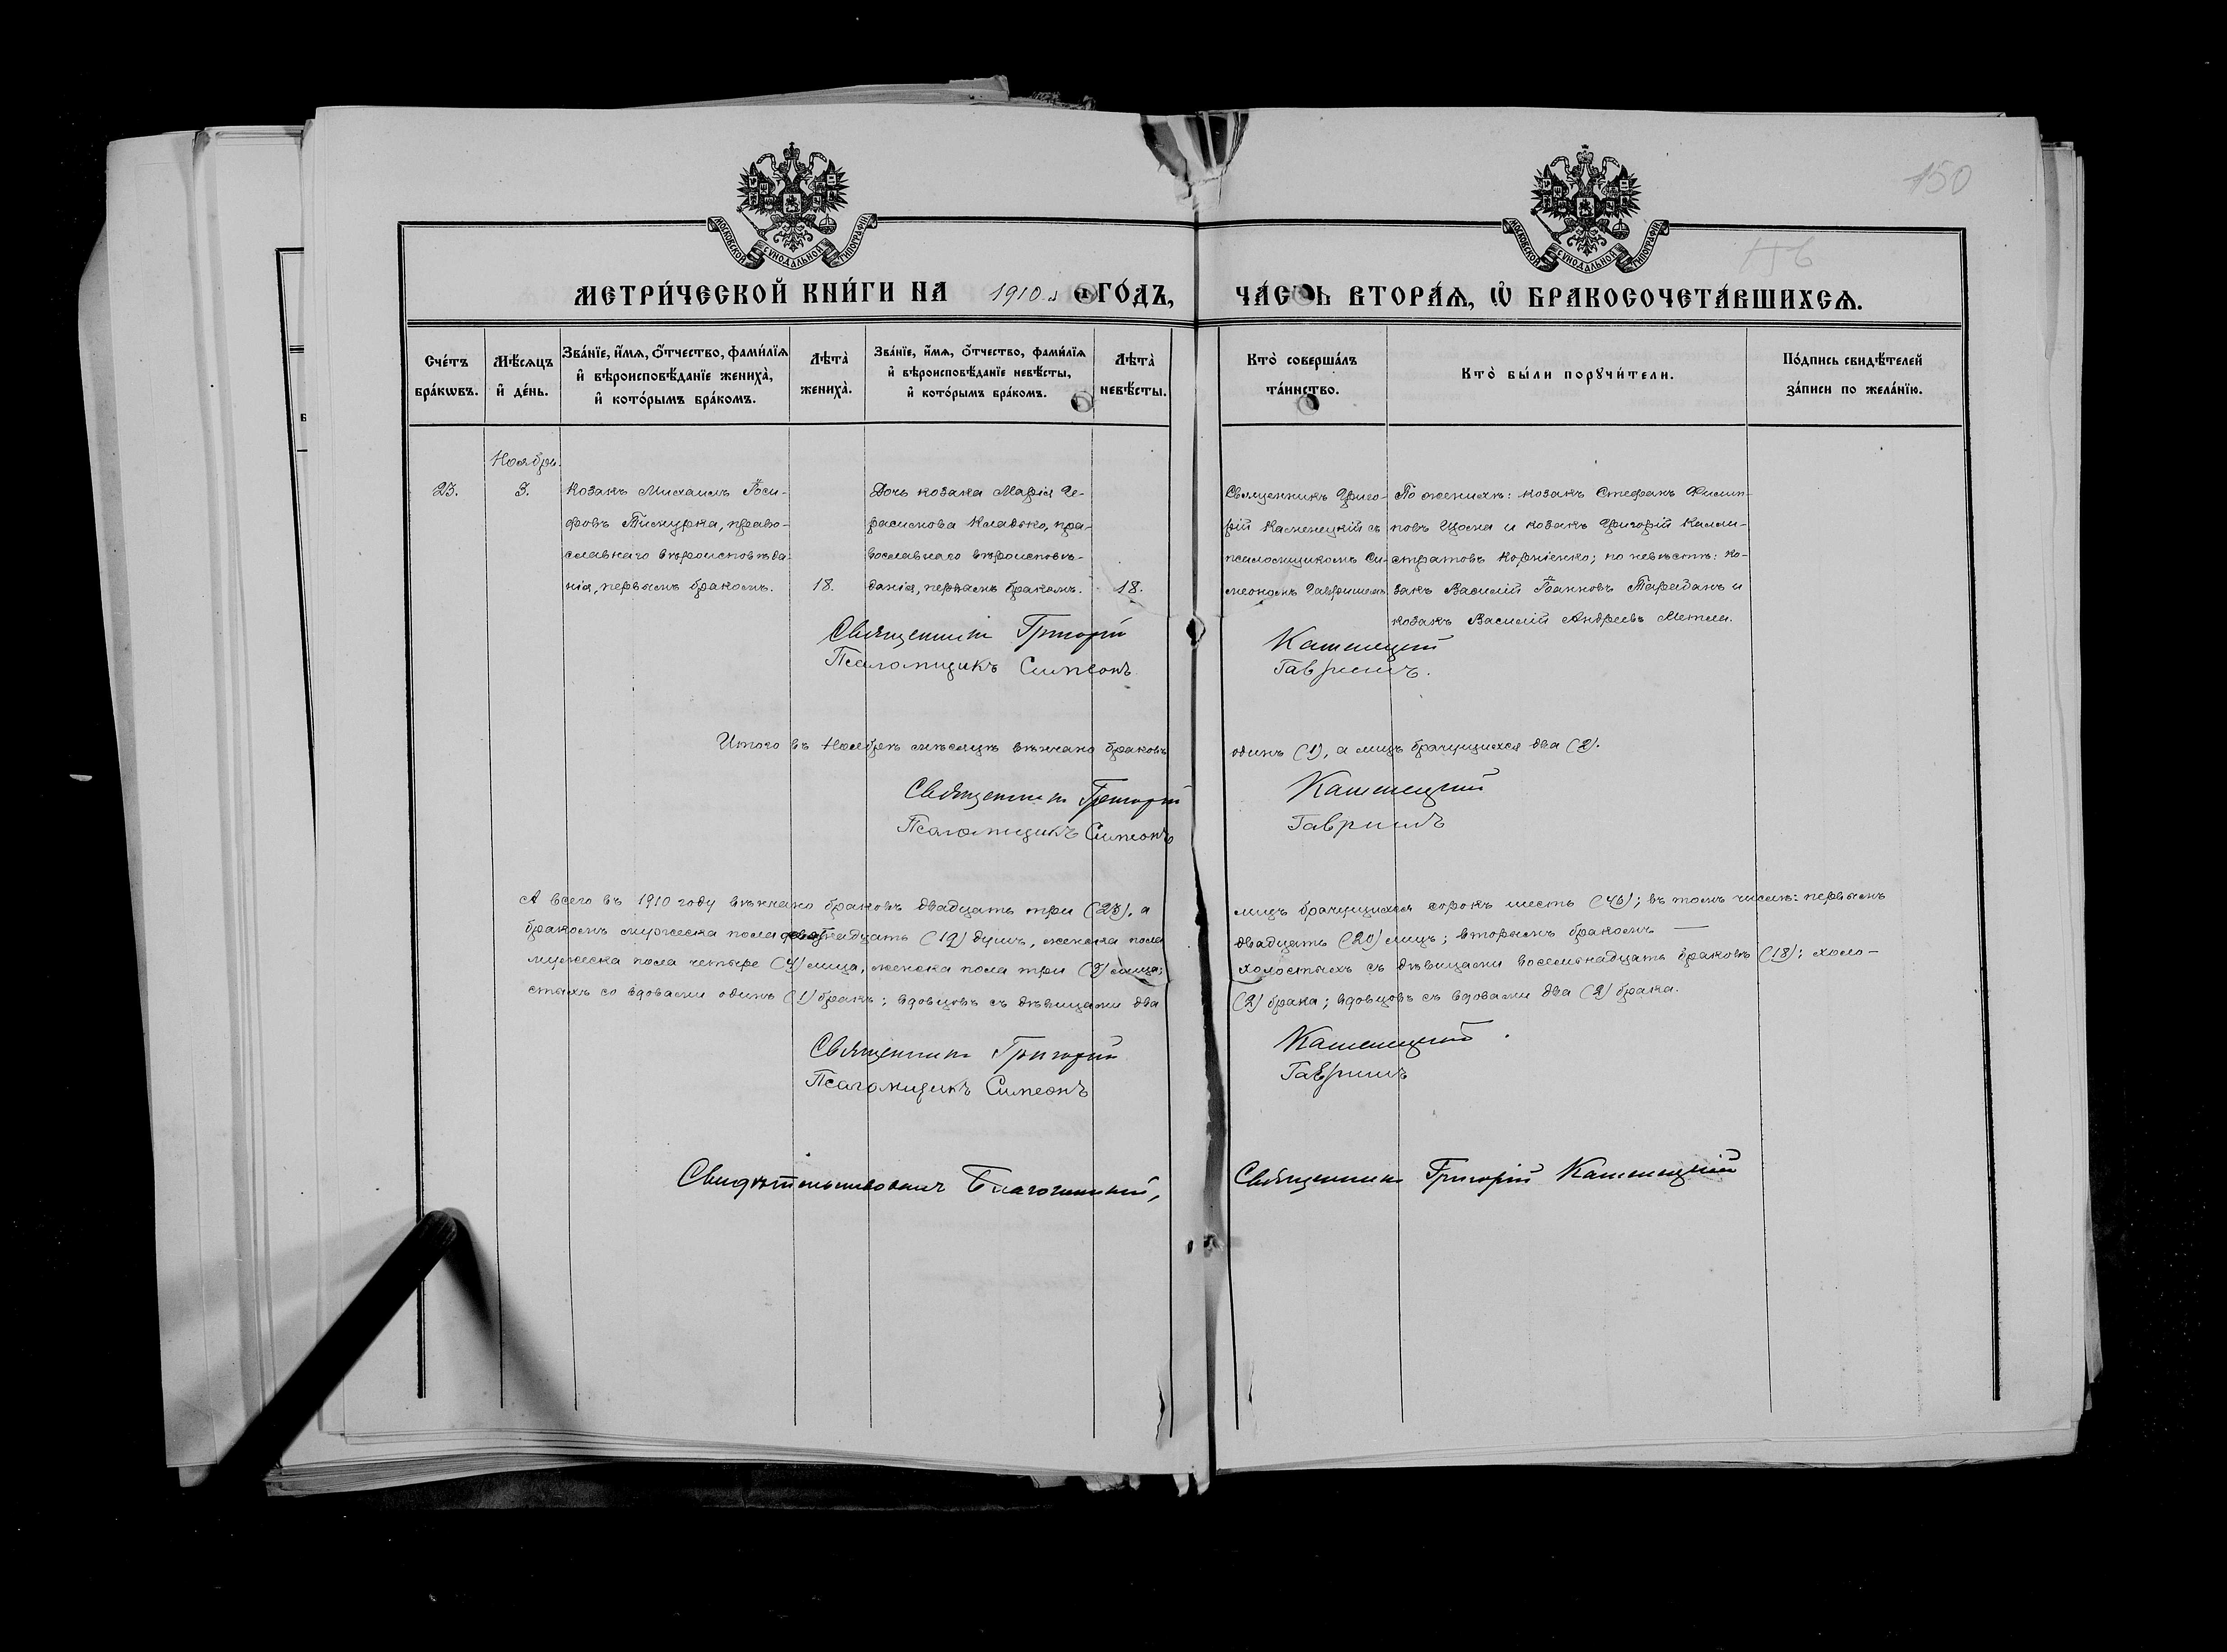 150
МОСКОВСКОЙ СѴНОДАЛЬНОЙ ТИПОГРАФІИ
МОСКОВСКОЙ СѴНОДАЛЬНОЙ ТИПОГРАФІИ
МЕТРИ́ЧЕСКОЙ КНИ́ГИ НА 1910 ГО́ДЪ,
ЧА́СТЬ ВТОРА́Ѧ, Ѡ҆ БРАКОСОЧЕТА́ВШИХСѦ.
Сче́тъ
бра́кѡвъ.
Мѣ́сѧцъ
и҆ де́нь.
Зва́нїе, и҆́мѧ, ѻ҆́тчество, фами́лїѧ
и҆ вѣроисповѣ́данїе жениха̀,
и҆ кото́рымъ бра́комъ.
Лѣта̀
жениха̀.
Зва́нїе, и҆́мѧ, ѻ҆́тчество, фами́лїѧ
и҆ вѣроисповѣ́данїе невѣ́сты,
и҆ кото́рымъ бра́комъ.
Лѣта̀
невѣ́сты.
Кто̀ соверша́лъ
та́инство.
Кто̀ бы́ли порꙋчи́тели.
По́дпись свидѣ́телей
за́писи по жела́нїю.
Ноябрь.
23.
3.
Козакъ Михаилъ Іоси-
фовъ Тимурка, право-
славнаго вѣроисповѣда-
нія, первымъ бракомъ.
18.
Дочь козака Марія Ге-
расимова Кладько, пра-
вославнаго вѣроисповѣ-
данія, первымъ бракомъ.
18.
Священникъ Григо-
рій Каменецкій съ
псаломщикомъ Си-
меономъ Гавришемъ
По женихѣ: козакъ Стефанъ Филип-
повъ Цома и козакъ Григорій Калли-
стратовъ Корніенко; по невѣстѣ: ко-
закъ Василій Іоанновъ Тарабанъ и
козакъ Василій Андреевъ Метла.
Священникъ Григорій Каменецкій
Псаломщикъ Симеонъ Гавришъ.
Итого въ Ноябрѣ мѣсяцѣ вѣнчано браковъ одинъ (1), а лицъ брачущихся два (2).
Священникъ Григорій Каменецкій
Псаломщикъ Симеонъ Гавришъ
А всего въ 1910 году вѣнчано браковъ двадцать три (23), а лицъ брачущихся сорокъ шесть (46); въ томъ числѣ: первымъ
бракомъ мужеска пола девятнадцать (19) душъ, женска пола двадцать (20) лицъ; вторымъ бракомъ —
мужеска пола четыре (4) лица, женска пола три (3) лица; холостыхъ съ дѣвицами восемнадцать браковъ (18); холо-
стыхъ со вдовами одинъ (1) бракъ; вдовцовъ съ дѣвицами два (2) брака; вдовцовъ съ вдовами два (2) брака.
Священникъ Григорій Каменецкій.
Псаломщикъ Симеонъ Гавришъ
Свидѣтельствовалъ Благочинный, Священникъ Григорій Каменецкій